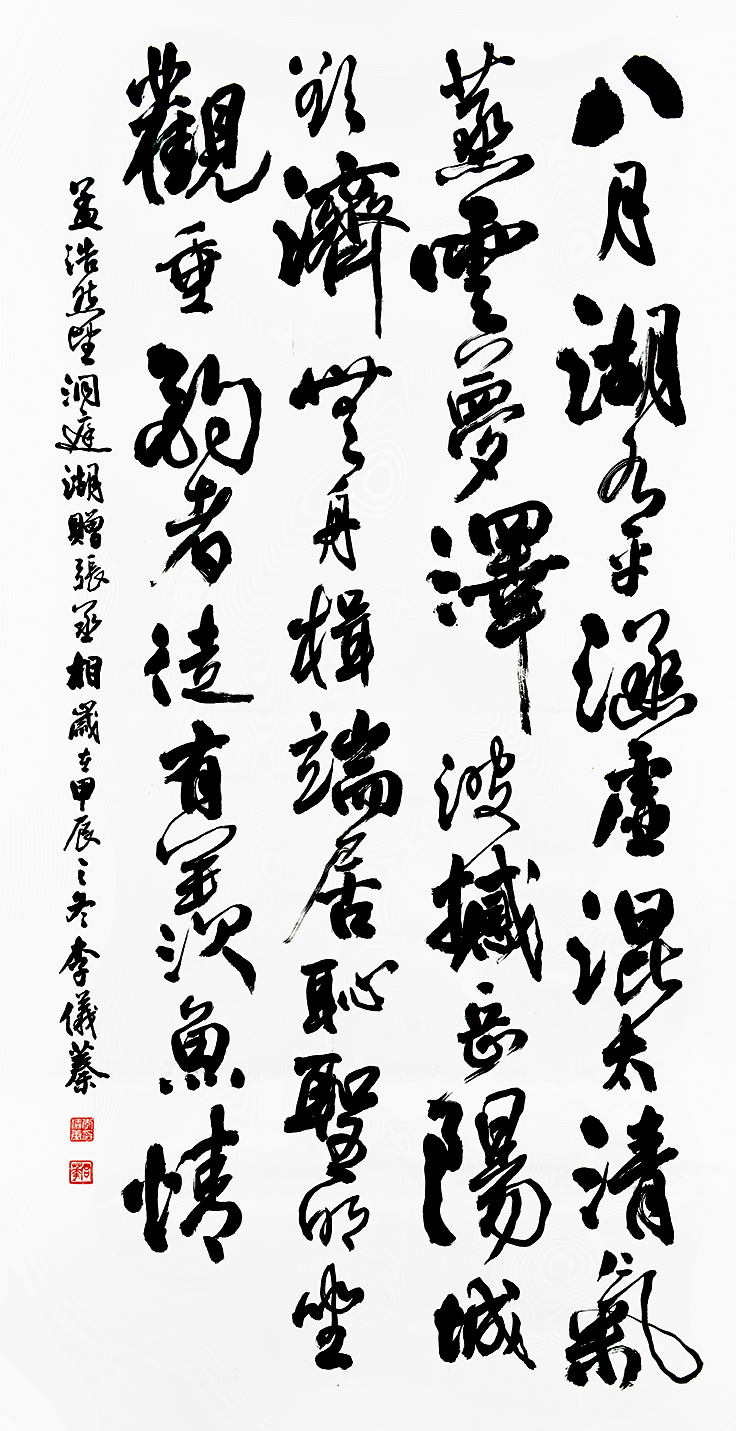 八月湖水平涵虛混太清氣
蒸雲夢澤波撼岳陽城
欲濟無舟楫端居恥聖明坐
觀垂釣者徒有羨魚情
孟浩然望洞庭湖贈張丞相歲在甲辰之冬李儀蓁